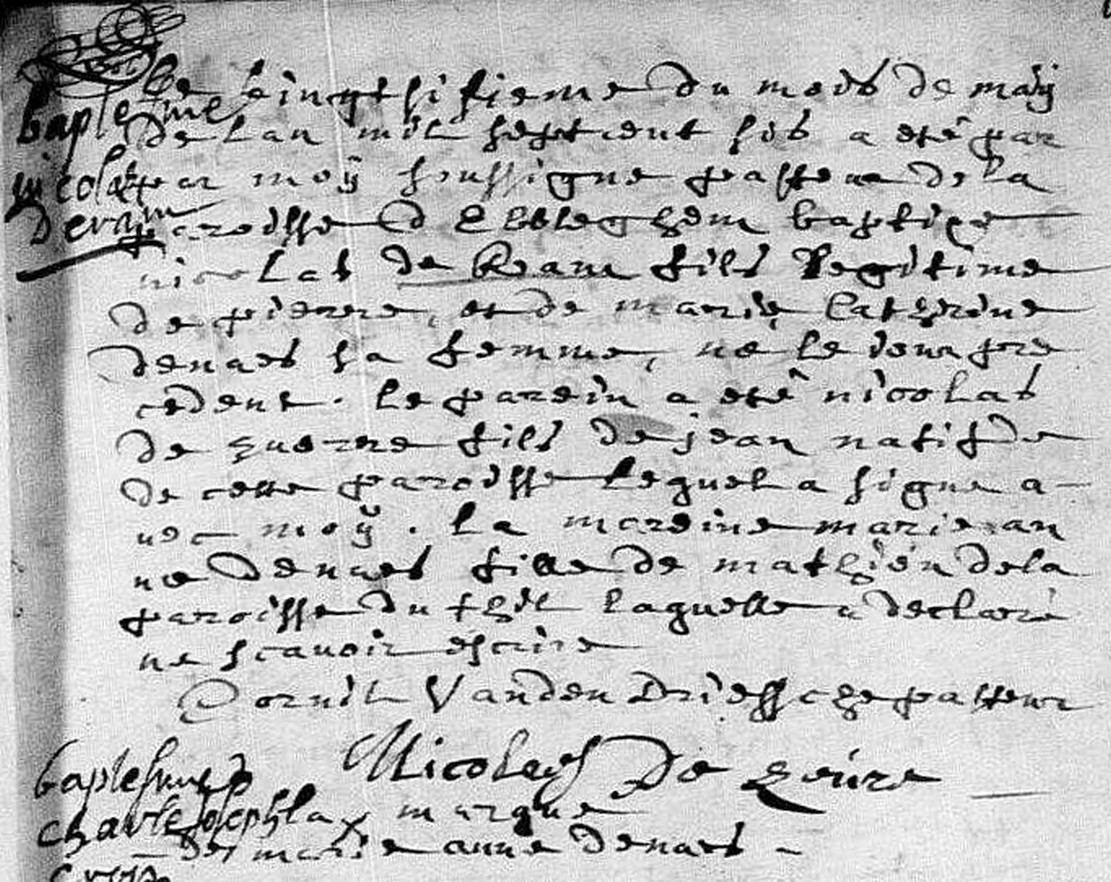 baptesme
nicolas
Deram
Le vingtsisieme du mois de maÿ
de l'an mil sept cent sis a eté par
par moÿ soussigne pasteur de la
paroisse d'Ebbleghem baptize
nicolas de Ram fils legitime
de pierre, et de marie Catherine
denaes sa femme, ne le jour pre
cedent. le parein a eté nicolas
de fils de jean natif de
de cette paroisse lequel a signe a-
uec moÿ. La mareine marie an
ne Denaes fille de mathieu de la
paroisse du thil laquelle a declaré
ne scauoir escrire
Cornil Vanden Driessche pasteur
Nicolays De
baptesme d
charle Joseph la
marque
de marie anne denaes